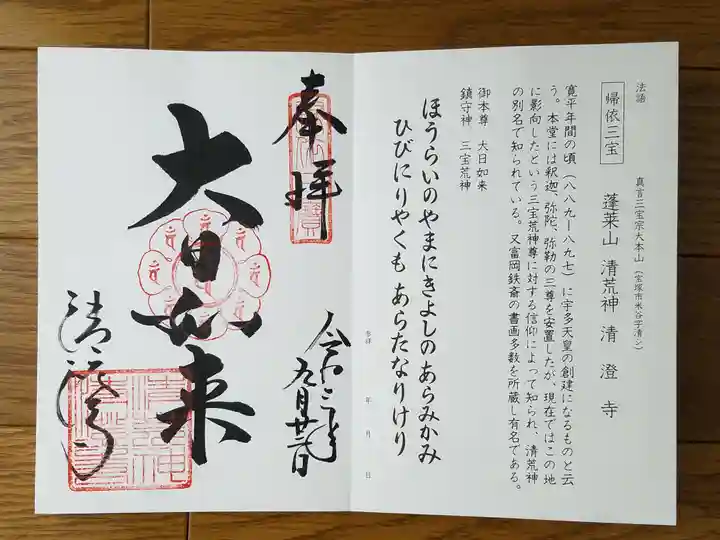 法語
帰依三宝
真言三宝宗大本山（宝塚市米谷字清シ）
蓬莱山 清荒神 清澄寺
寛平年間の頃（八八九ー八九七）に宇多天皇の創建になるものと云
う。本堂には釈迦、弥陀、弥勒の三尊を安置したが、現在ではこの地
に影向したという三宝荒神尊に対する信仰によって知られ、清荒神
の別名で知られている。又富岡鉄斎の書画多数を所蔵し有名である。
御本尊 大日如来
鎮守神 三宝荒神
ほうらいのやまにきよしのあらみかみ
ひびにりやくも あらたなりけり
参拝 年 月 日
奉拝
令和三年
九月廿三日
大日如来
清荒神